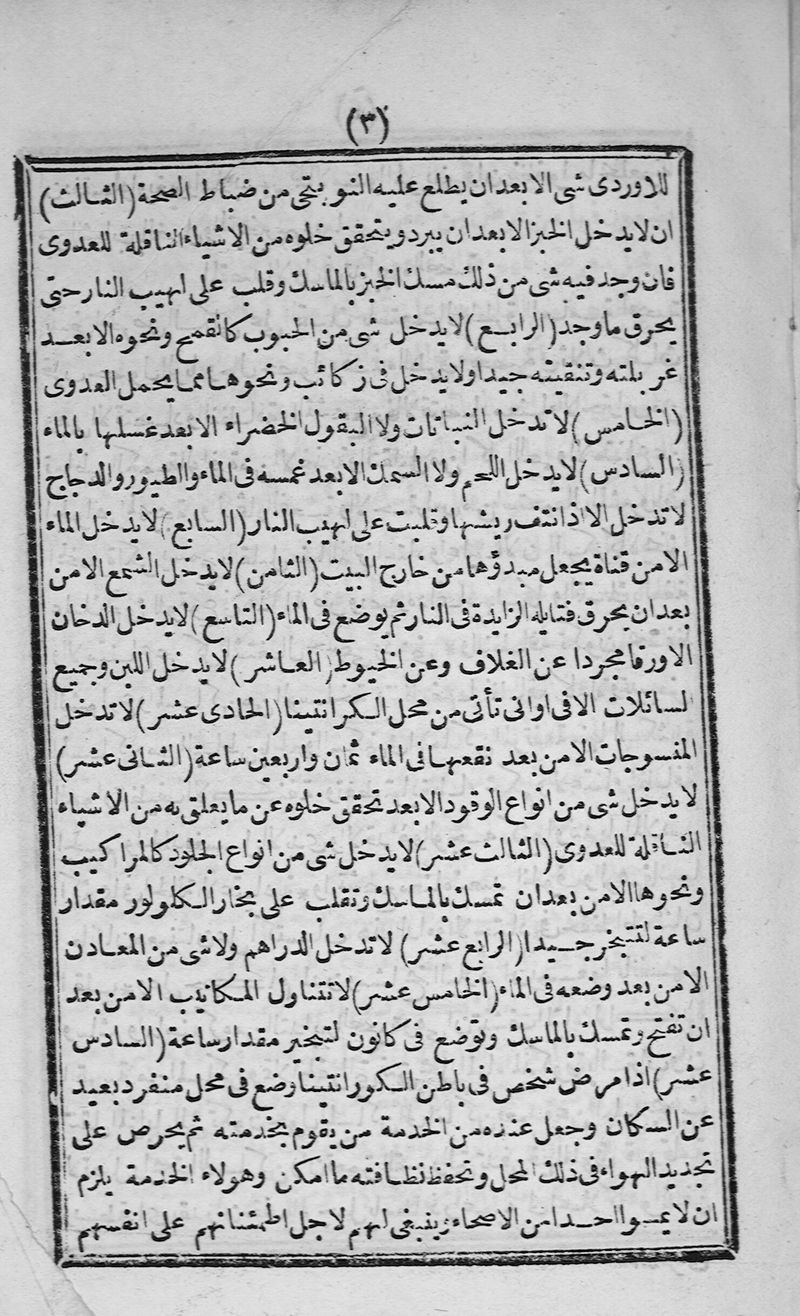 (٣)
للاوردى شى الا بعد ان يطلع عليه النوبتجى من ضباط الصحة (الثالث)
ان لا يدخل الخبز الا بعد ان يبرد و يتحقق خلوه من الاشياء الناقلة للعدوى
فان وجد فيه شى من ذلك مسك الخبز بالماسك وقلب على لهيب النار حتى
يحرق ما وجد (الرابع) لا يدخل شى من الحبوب كالقمح ونحوه الا بعد
غربلته وتنقيته جيدا ولا يدخل فى زكائب ونحوها مما يحمل العدوى
(الخامس) لا تدخل النباتات ولا البقول الخضراء الا بعد غسلها بالماء
(السادس) لا يدخل اللحم ولا السمك الا بعد غمسه فى الماء والطيور والدجاج
لا تدخل الا اذا نتف ريشها وقلبت على لهيب النار (السابع) لا يدخل الماء
الا من قناة يجعل مبدؤها من خارج البيت (الثامن) لا يدخل الشمع الا من
بعد ان يحرق فتايله الزايدة فى النار ثم يوضع فى الماء (التاسع) لا يدخل الدخان
الا ورقا مجردا عن الغلاف وعن الخيوط (العاشر) لا يدخل اللبن وجميع
لسائلات الا فى اوانى تأتى من محل الكرانتينا (الحادى عشر) لا تدخل
المنسوجات الا من بعد نقعها فى الماء ثمان واربعين ساعة (الثانى عشر)
لا يدخل شى من انواع الوقود الا بعد تحقق خلوه عن ما يعلق به من الاشياء
الناقلة للعدوى (الثالث عشر) لا يدخل شى من انواع الجلود كالمراكيب
ونحوها الا من بعد ان تمسك بالماسك وتقلب على بخار الكلولور مقدار
ساعة لتتبخر جيدا (الرابع عشر) لا تدخل الدراهم ولا شى من المعادن
الا من بعد وضعه فى الماء (الخامس عشر) لا تتناول المكاتيب الا من بعد
ان تفتح وتمسك بالماسك وتوضع فى كانون لتبخير مقدار ساعة (السادس
عشر) اذا مرض شخص فى باطن الكورانتينا وضع فى محل منفرد بعيد
عن السكان وجعل عنده من الخدمة من يقوم بخدمته ثم يحرص على
تجديد الهواء فى ذلك المحل وتحفظ نظافته ما امكن وهولاء الخدمة يلزم
ان لا يمسوا احدا من الاصحاء وينبغى لهم لاجل اطمئنانهم على انفسهم